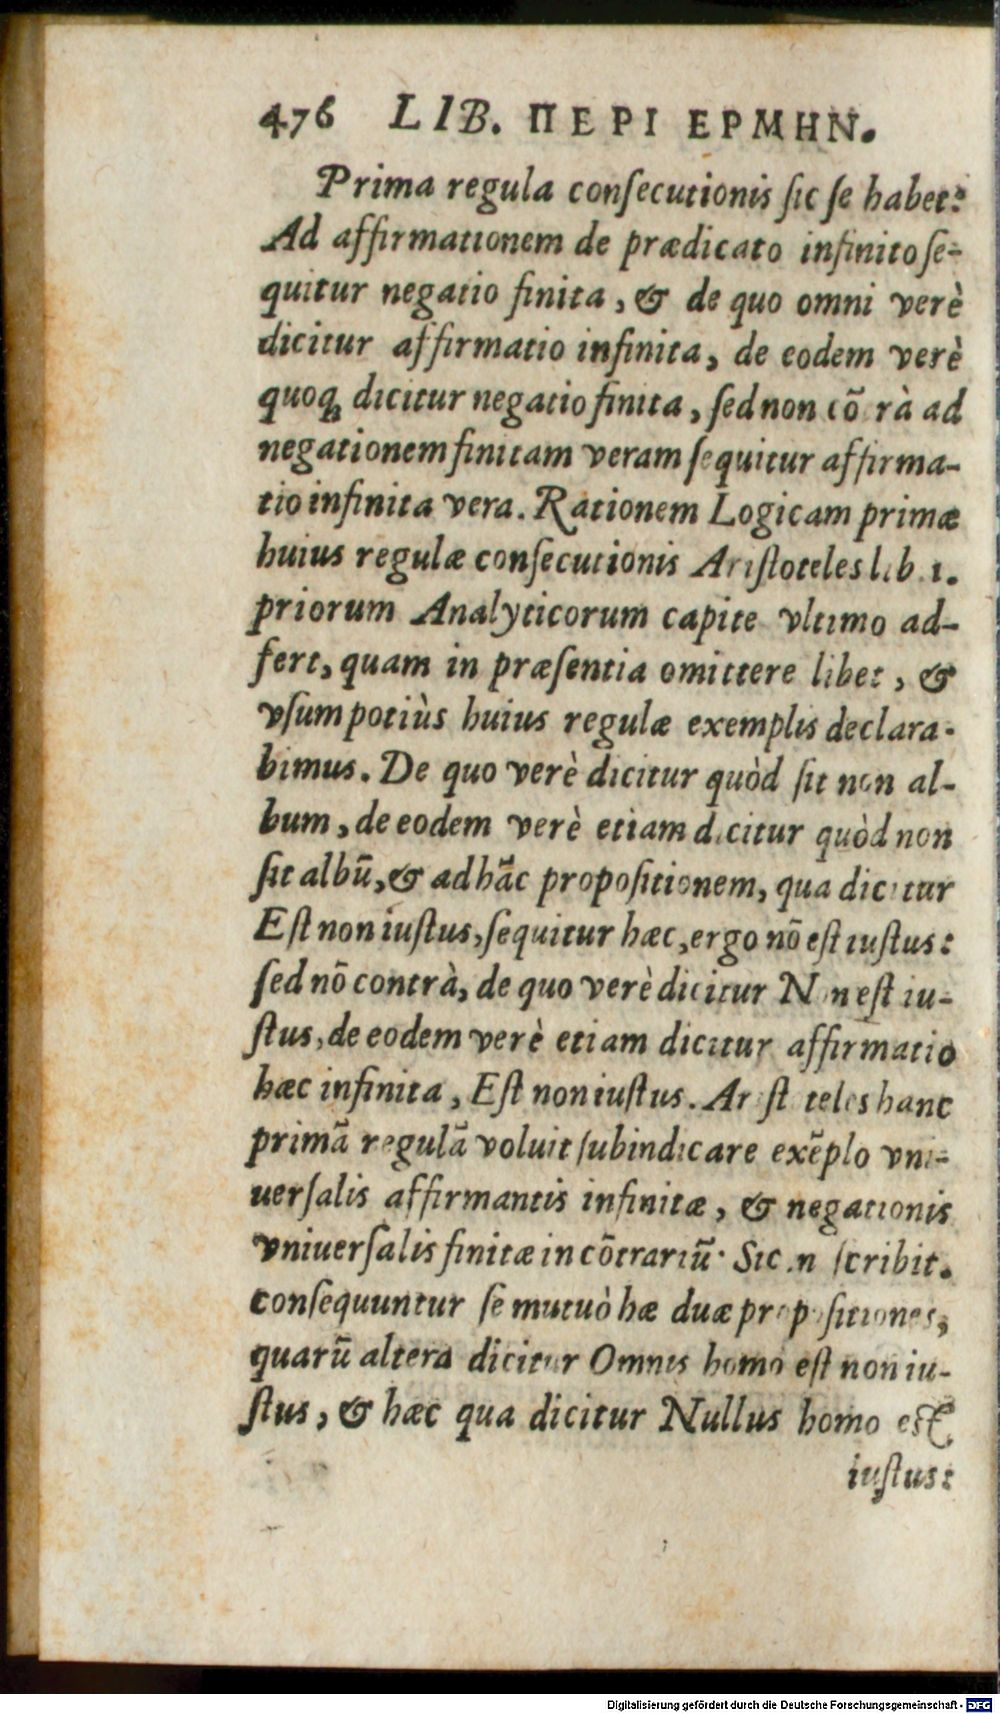 476 LIB. ΠΕΡΙ ΕΡΜΗΝ.
Prima regula conſecutionis ſic ſe habet:
Ad affirmationem de prædicato infinito ſe-
quitur negatio finita, & de quo omni verè
dicitur affirmatio infinita, de eodem verè
quoq; dicitur negatio finita, ſed non cõ rà ad
negationem finitam veram ſequitur affirma-
tio infinita vera. Rationem Logicam primæ
huius regulæ conſecutionis Ariſtoteles lib. 1.
priorum Analyticorum capite vltimo ad-
fert, quam in præſentia omittere libet, &
vſum potiùs huius regulæ exemplis declara-
bimus. De quo verè dicitur quòd ſit non al-
bum, de eodem verè etiam dicitur quòd non
ſit albũ, & ad hãc propoſitionem, qua dicitur
Eſt non iuſtus, ſequitur hæc, ergo nõ eſt iuſtus:
ſed nõ contrà, de quo verè dicitur Non eſt iu-
ſtus, de eodem verè etiam dicitur affirmatio
hæc infinita, Eſt non iuſtus. Ar ſt teles hanc
primã regulã voluit ſubindicare exẽplo vni-
uerſalis affirmantis infinitæ, & negationis
vniuerſalis finitæ in cõtrariũ. Sic .n ſcribit.
conſequuntur ſe mutuò hæ duæ propoſitiones,
quarũ altera dicitur Omnis homo eſt non iu-
ſtus, & hæc qua dicitur Nullus homo eſt
iuſtus:
Digitalisierung gefördert durch die Deutsche Forschungsgemeinschaft - DFG